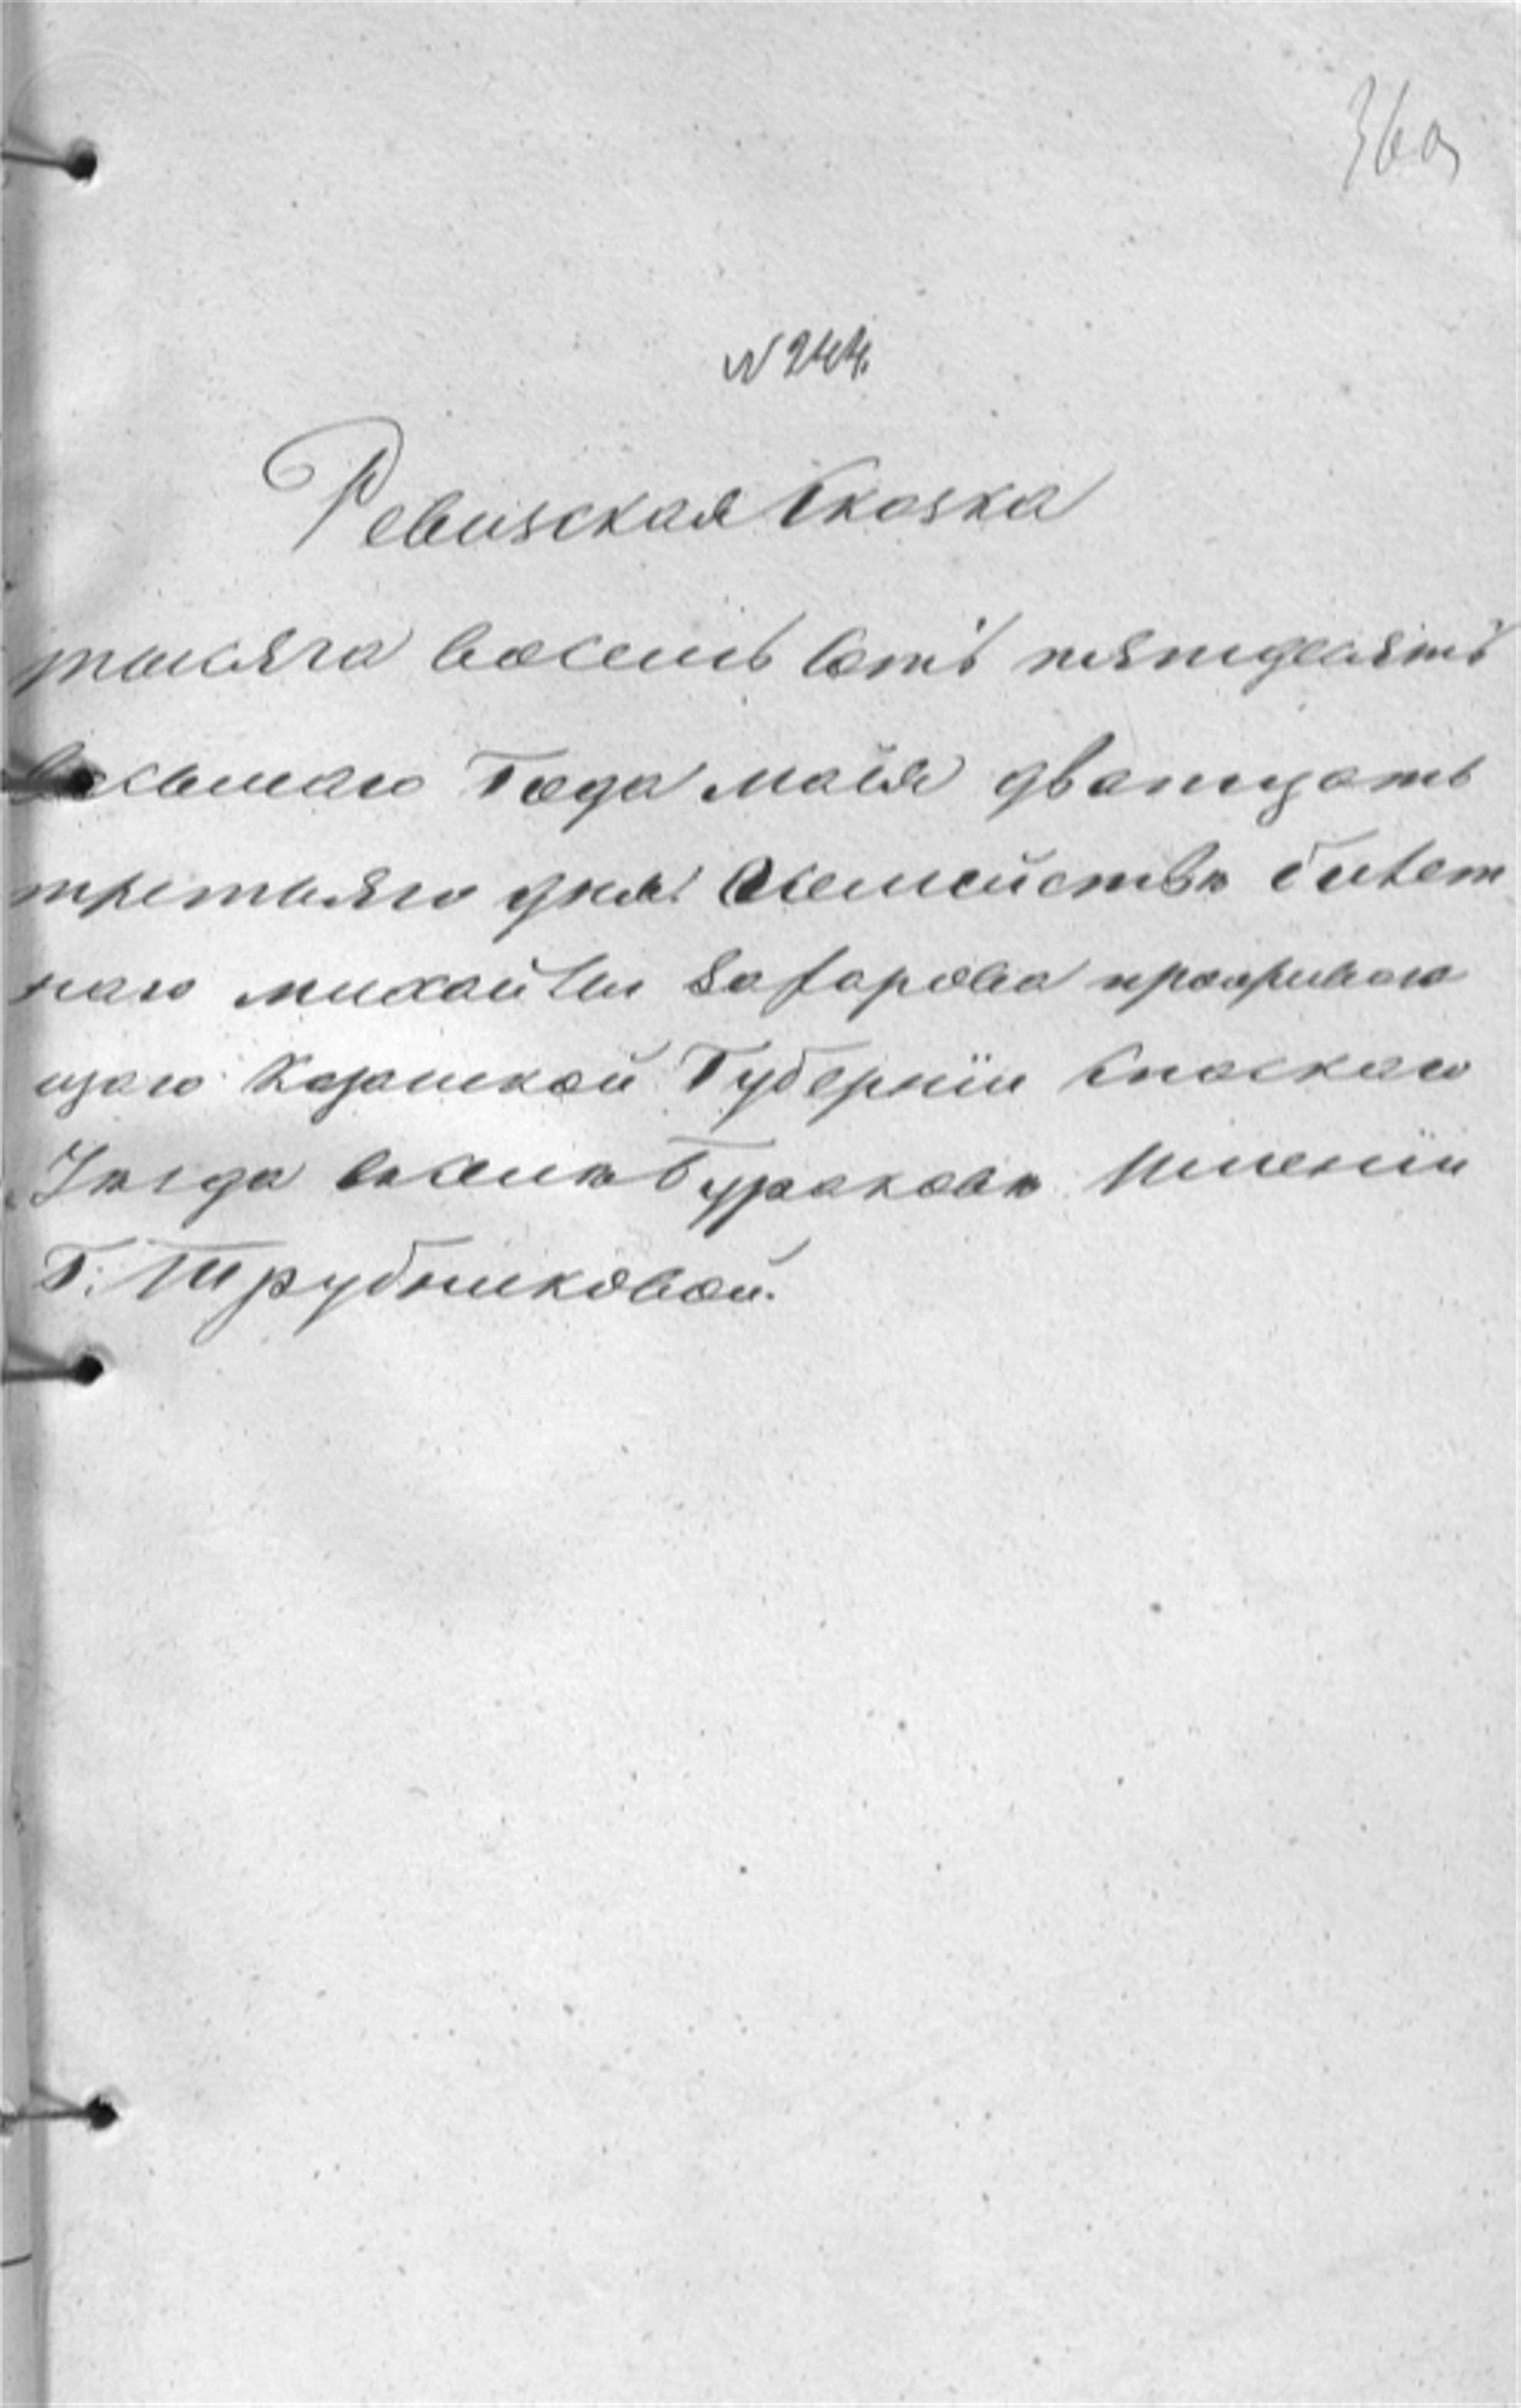 360
N 244.
Ревизская Сказка
тысяча восемь сотъ пятидесятъ
восьмаго Года маiя дватцать
третьяго дня. О семействѣ билет
наго михайлы Захарова проживаю
щаго Казанской Губернiи Спаскаго
Уѣзда всельцѣ Бураковѣ Именiи
Г. Трубниковой.